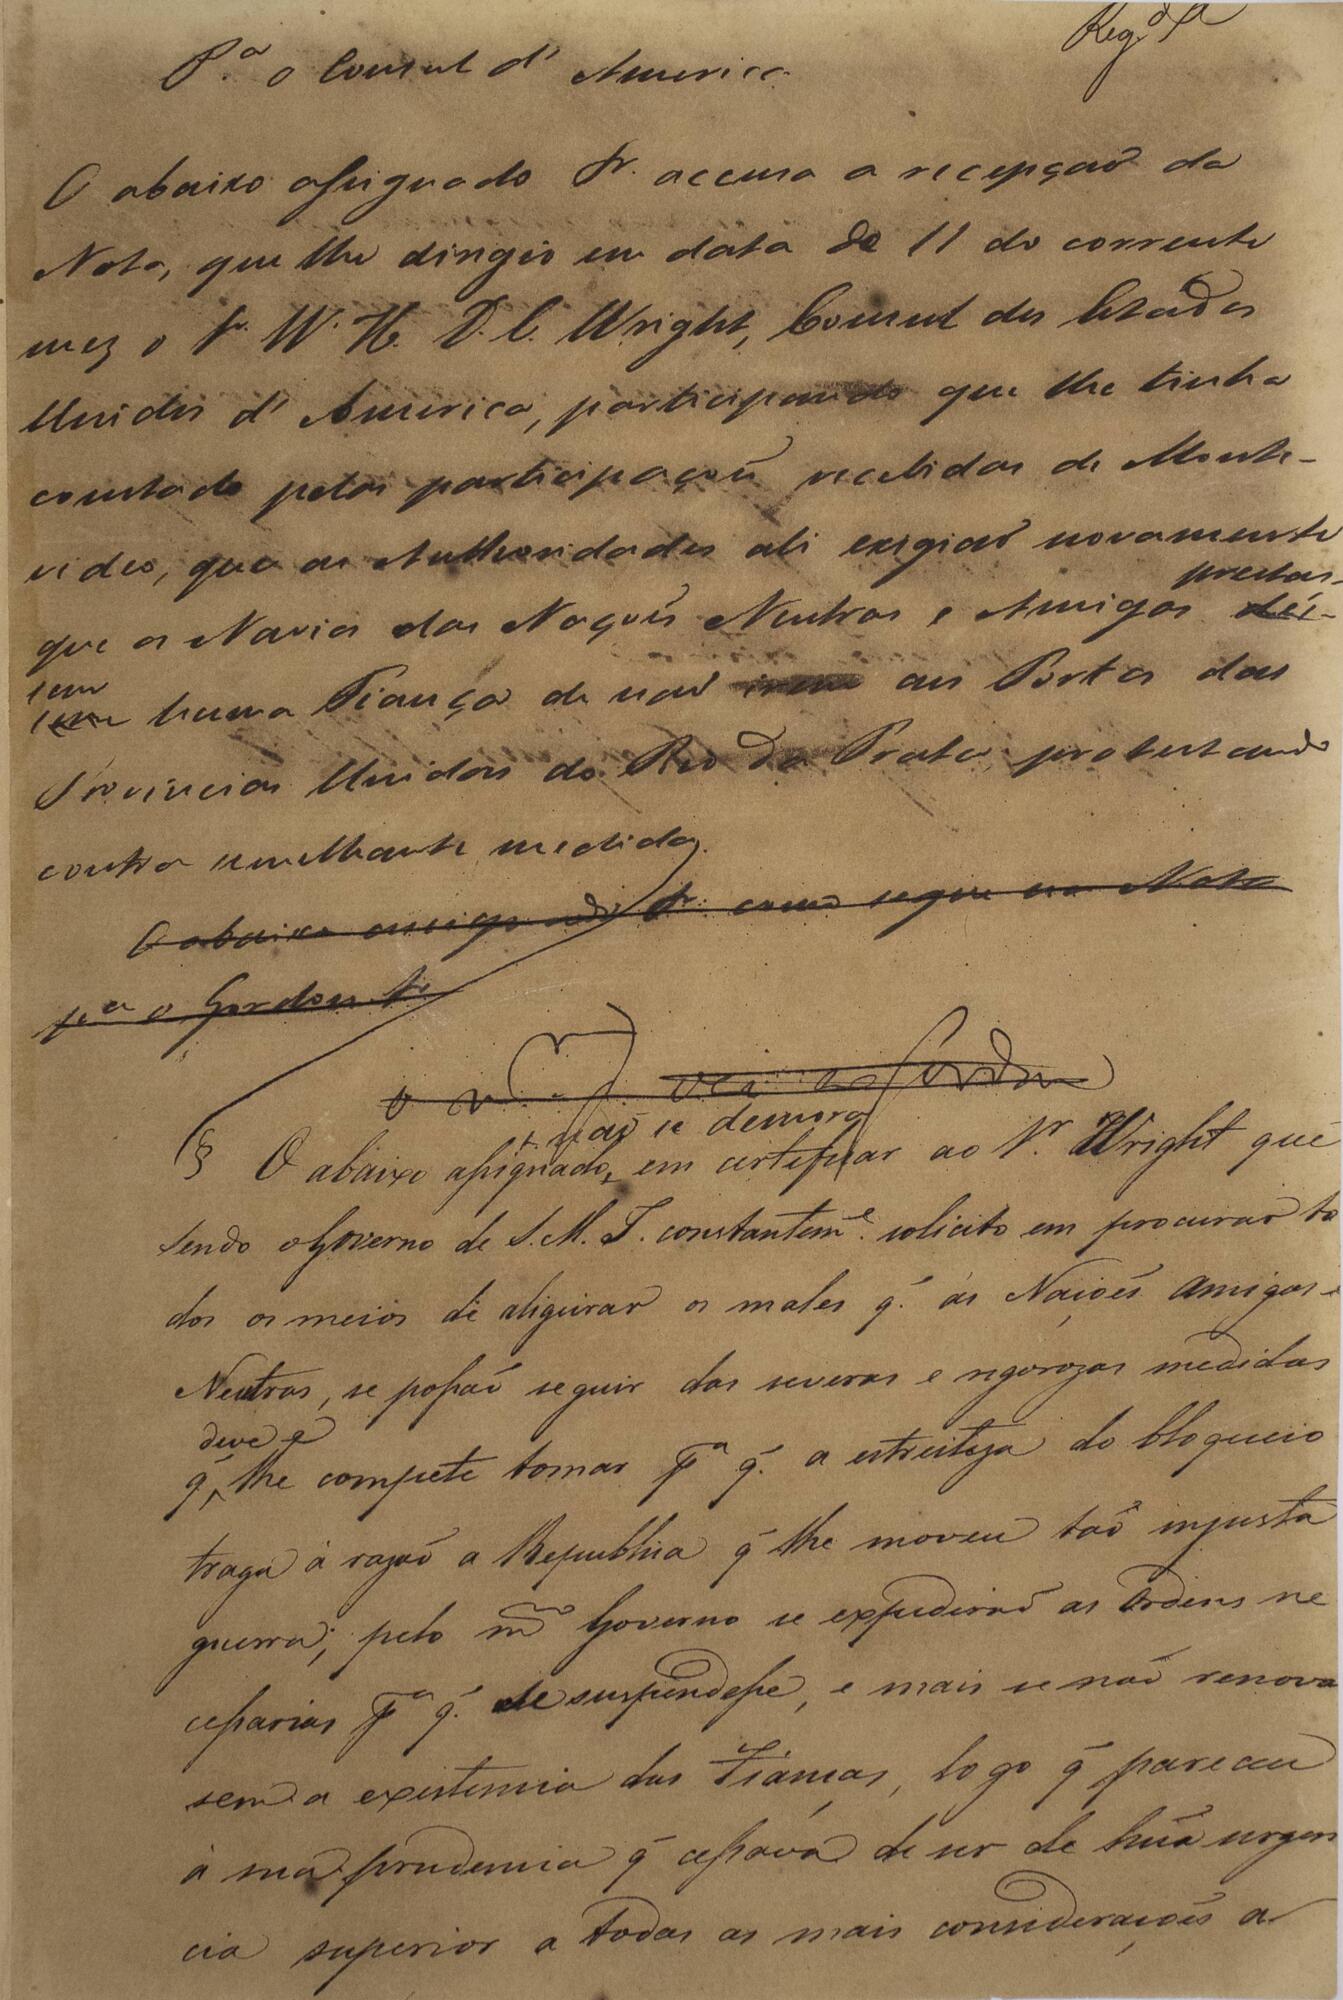 Reg.da
P.a o Consul d'America
O abaixo assignado &r. accusa a recepçaõ da
Nota, que lhe dirigio em data de 11 do corrente
mez o Sr. W. H. D. C. Wright, Consul dos Estados
Unidos d'America, participando que lhe tinha
constado pelas participaçoẽs recebidas de Monte-
video, que as Authoridades ali exigiaõ novamente
prestas-
que os Navios das Naçoẽs Neutras e Amigas
sem
huma Fiança de naõ irem aos Portos das
Provincias Unidas do Rio da Prata, protestando
contra semelhante medida.
O abaixo assignado &r. como segue na Nota
p.a o Gordon &
o Gordon
naõ se demora
§ O abaixo assignado, em certificar ao Sr. Wright que
sendo o Governo de S. M. I. constantem.e solicito em procurar to
dos os meios de aligeirar os males q̃. ás Naçoẽs Amigas e
Neutras, se possaõ seguir das severas e rigorozas medidas
deve e
q̃ lhe compete tomar p.a q̃. a estreiteza do bloqueio
traga á razaõ a Republica q̃ lhe moveu taõ injusta
guerra; pelo m.mo Governo se expediraõ as Ordens ne
cessarias p.a q̃. se suspendesse, e mais se naõ renova
sem a existencia das Fianças, logo q̃ pareceu
á sua prudencia q̃ cessava de ser de huã urgen
cia superior a todas as mais consideraçoẽs a